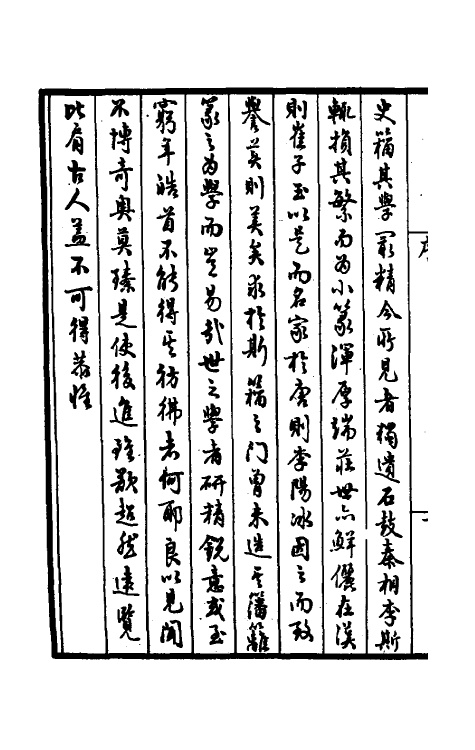 史籀其學最精今所見者獨遺石鼓秦相李斯
輒損其繁而為小篆渾厚端莊世亦鮮儷在漢
則崔子玉以是而名家於唐則李陽冰因之而致
譽美則美矣求於斯籀之門曾未造其藩籬
篆之為學而豈易哉世之學者研精銳意或至
窮年皓首不能得其彷彿者何耶良以見聞
不博奇奧莫臻是使後進雖欲超然遠覽
比肩古人蓋不可得恭惟
序